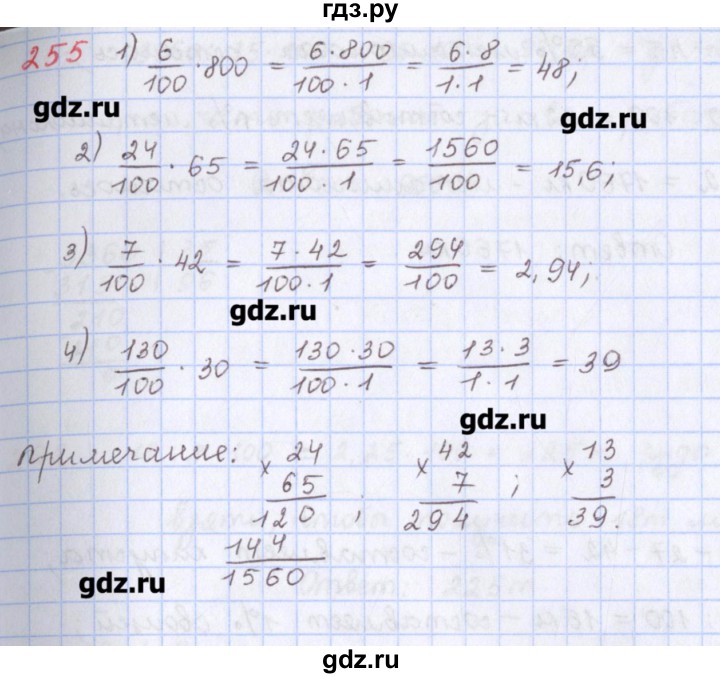 гдз.ру
255 1) 6/100 · 800 = 6·800/100·1 = 6·8/1·1 = 48;
gdz.ru
gdz.ru
2) 24/100 · 65 = 24·65/100·1 = 1560/100 = 15,6;
3) 7/100 · 42 = 7·42/100·1 = 294/100 = 2,94;
gdz.ru
4) 130/100 · 30 = 130·30/100·1 = 13·3/1·1 = 39
gdz.ru
примечание: × 24 × 42 × 13
65 ; 7 ; 3
120 294 39.
144
1560
gdz.ru
gdz.ru